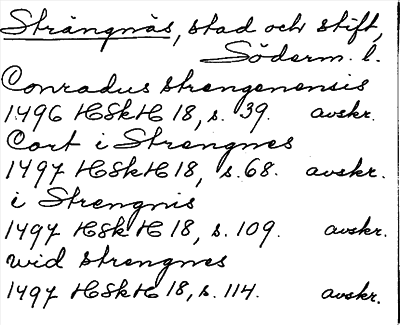 Strängnäs, stad och stift,
Söderm. l.
Conradus strengenensis
1496 HSkH 18, s. 39. avskr.
Cort i Strengnes
1497 HSkH 18, s. 68. avskr.
i Strengnis
1497 HSkH 18, s. 109. avskr.
wid strengnes
1497 HSkH 18, s. 114. avskr.